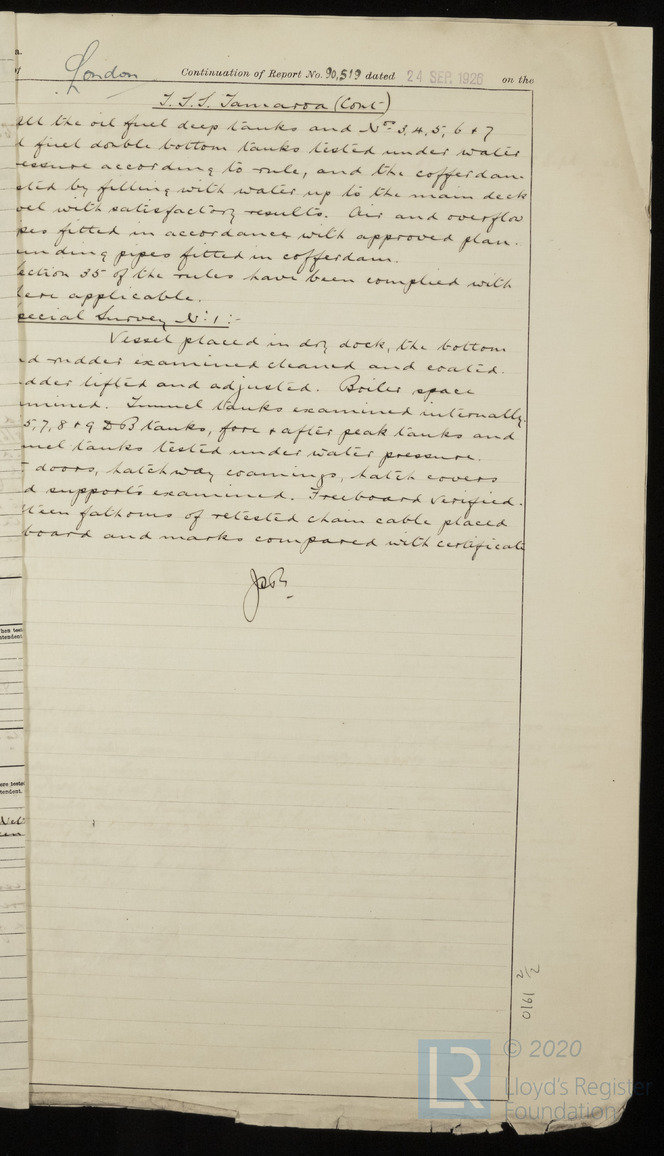 London Continuation of Report No. 90,519 dated 24 SEP 1926 on the
T.S.S. Tamaroa (Cont)
all the oil fuel deep tanks and Nos 3, 4, 5, 6 & 7
l fuel double bottom tanks tested under water
essure according to rule, and the cofferdam
sted by filling with water up to the main deck
vel with satisfactory results. Air and overflow
pes fitted in accordance with approved plan.
unding pipes fitted in cofferdam.
ection 35 of the rules have been complied with
here applicable.
pecial Survey No: 1:-
Vessel placed in dry dock, the bottom
nd rudder examined cleaned and coated.
udder lifted and adjusted. Boiler space
amined. Tunnel tanks examined internally.
5, 7, 8 & 9 DB tanks, fore & after peak tanks and
nnel tanks tested under water pressure.
T doors, hatchway coamings, hatch covers
d supports examined. Freeboard verified.
teen fathoms of retested chain cable placed
board and marks compared with certificate
hen tes
ttendent
ere teste
tendent.
0161 2/2
LR © 2020
Lloyd's Register
Foundation